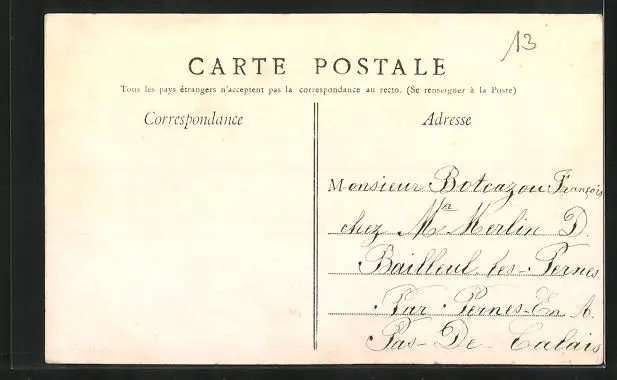 13
CARTE POSTALE
Tous les pays étrangers n'acceptent pas la correspondance au recto. (Se renseigner à la Poste)
Correspondance
Adresse
Monsieur Botcazou François
chez Ma Merlin D.
Bailleul les-Pernes
Par Pernes-En A.
Pas-De-Calais